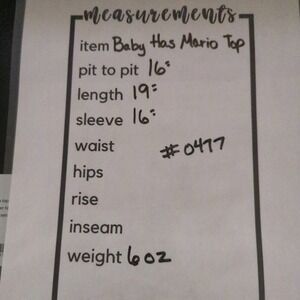 measurements
item Baby Has Mario Top
pit to pit 16"
length 19"
sleeve 16"
waist
#0477
hips
rise
inseam
weight 6oz